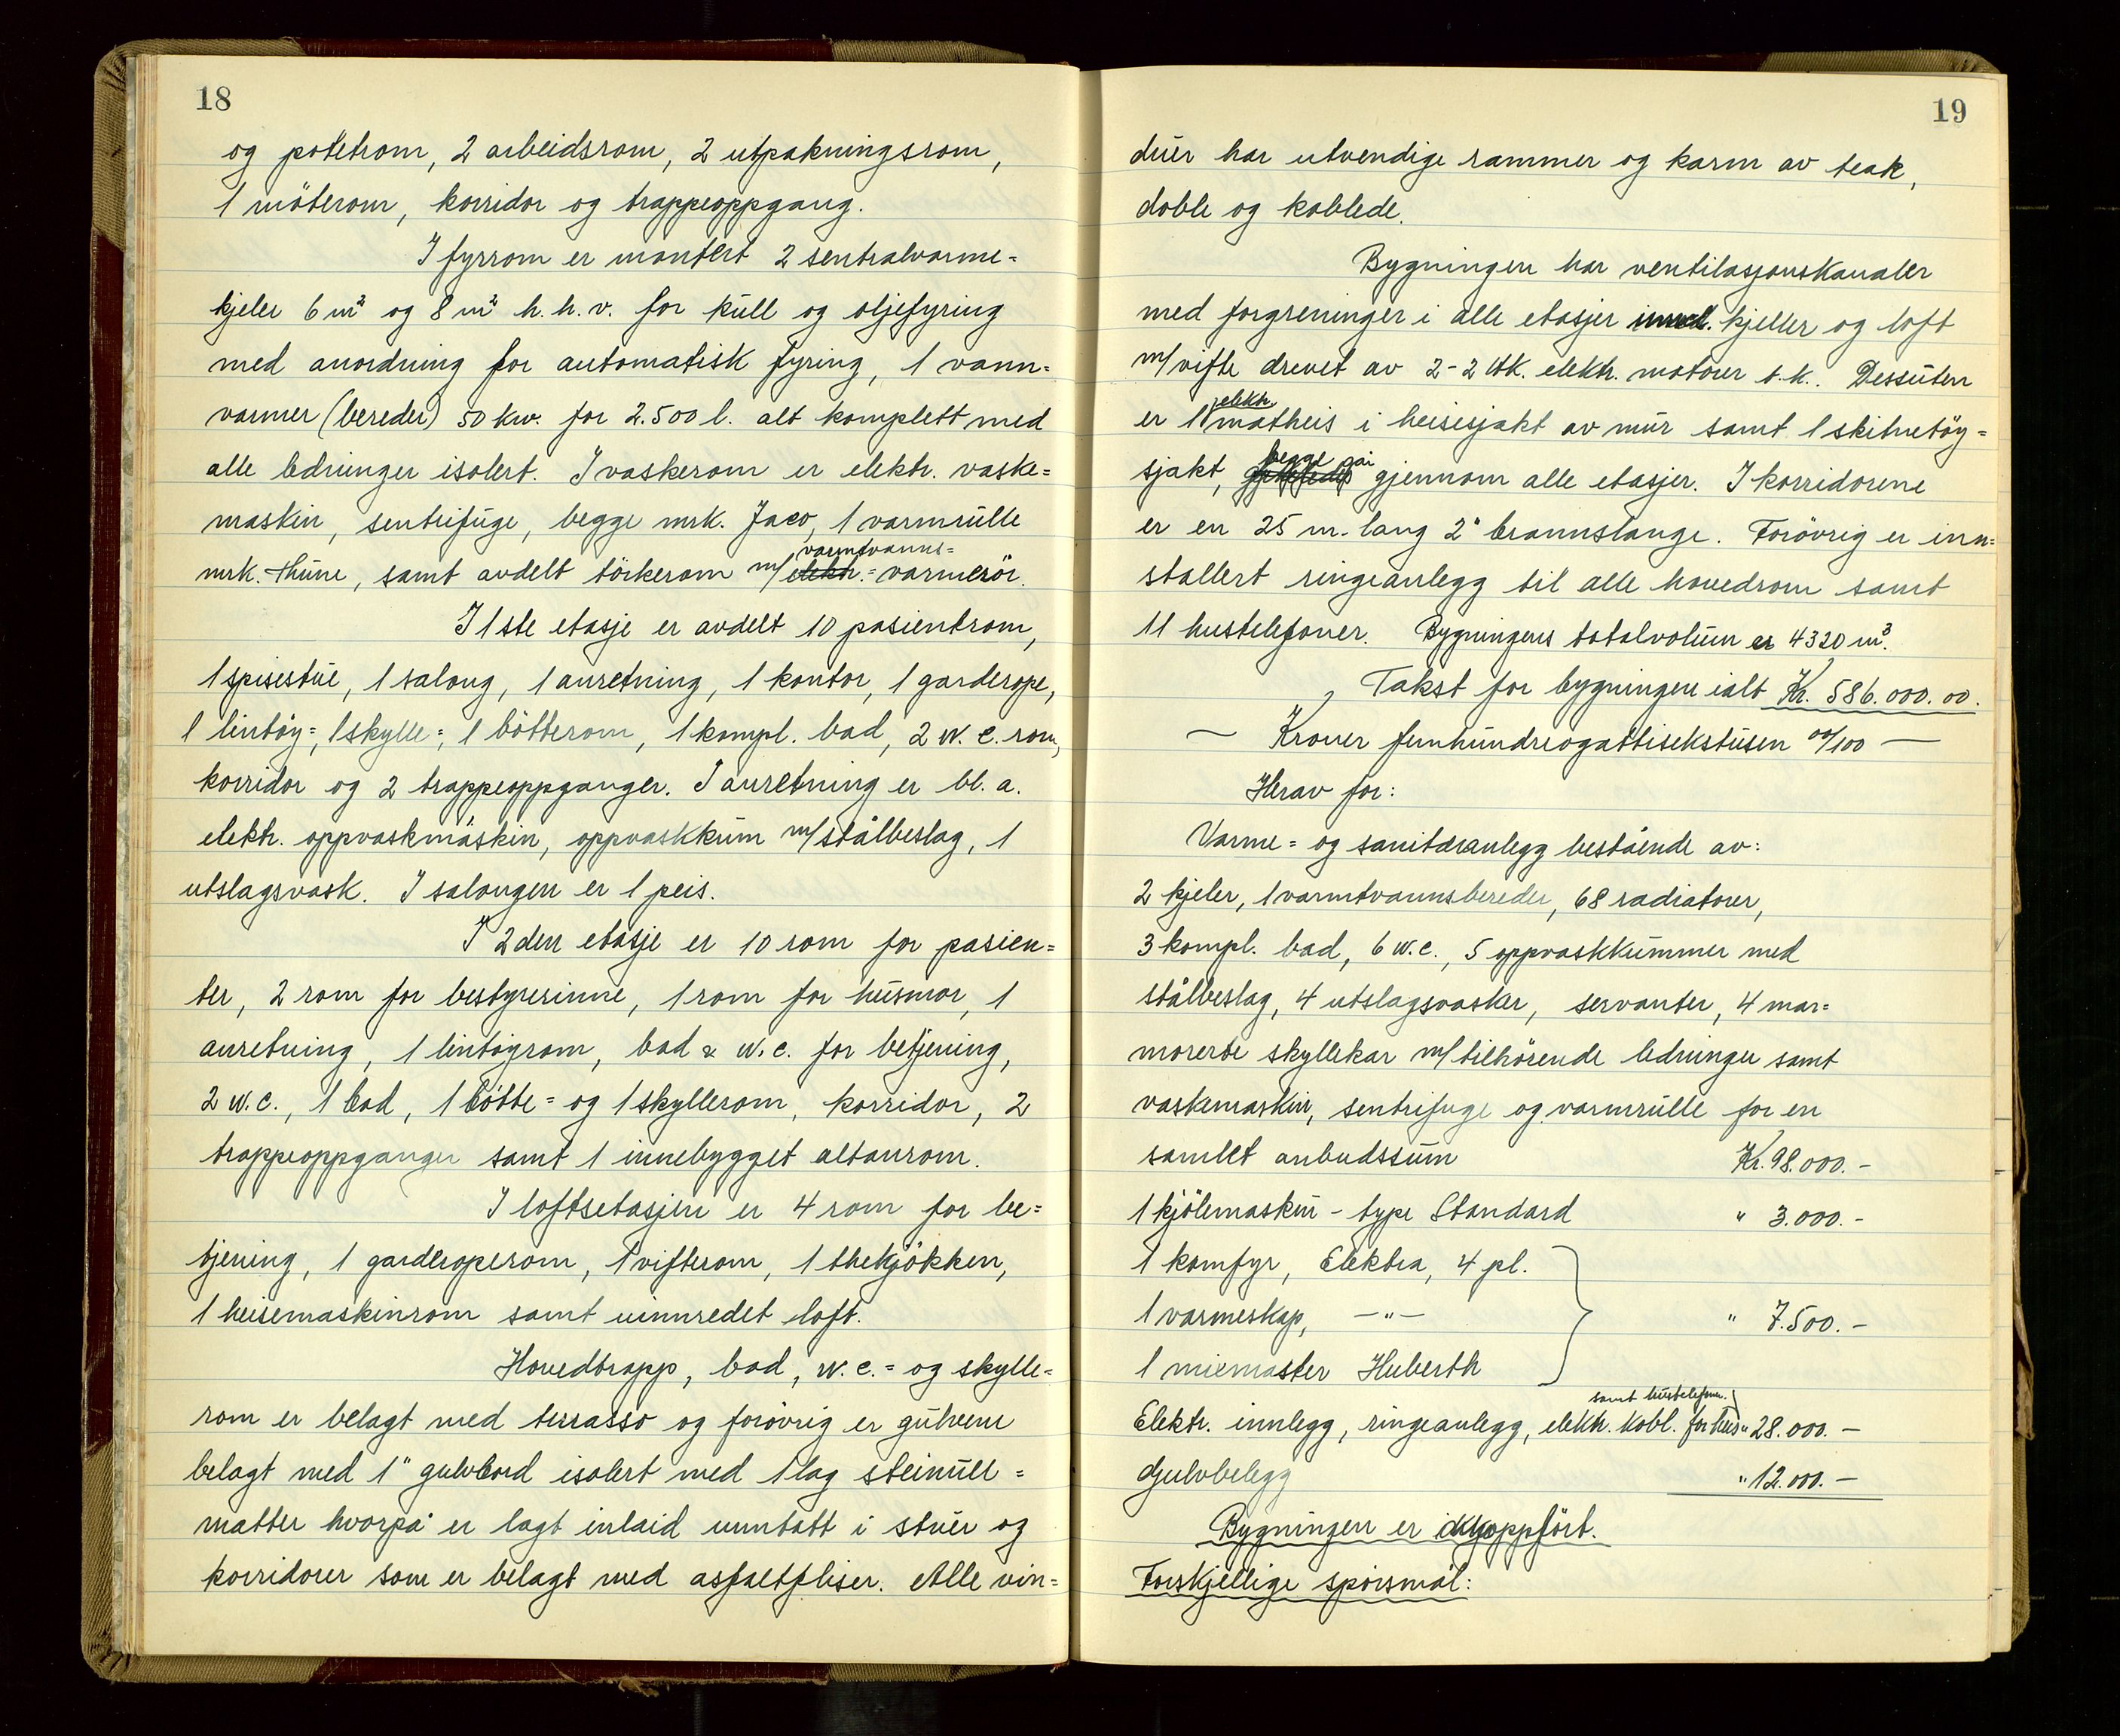 18
og potetrom, 2 arbeidsrom, 2 utpakningsrom,
1 möterom, korridor og trappeoppgang.
I fyrrom er montert 2 sentralvarme=
kjeler 6 m² og 8 m² h.h.v. for kull og oljefyring
med anordning for automatisk fyring, 1 vann=
varmer (bereder) 50 kw. for 2.500 l. alt komplett med
alle ledninger isolert. I vaskerom er elektr. vaske=
maskin, sentrifuge, begge mrk. Jaco, 1 varmrulle
varmtvanns=
mrk. Thune, samt avdelt törkerom m/ elektr.= varmerör.
I 1ste etasje er avdelt 10 pasientrom,
1 spisestue, 1 salong, 1 anretning, 1 kontor, 1 garderope,
1 lintöy=, 1 skylle=, 1 bötterom, 1 kompl. bad, 2 w.c. rom,
korridor og 2 trappeoppganger. I anretning er bl.a.
elektr. oppvaskmaskin, oppvaskkum m/stålbeslag, 1
utslagsvask. I salongen er 1 peis.
I 2den etasje er 10 rom for pasien=
ter, 2 rom for bestyrerinne, 1 rom for husmor, 1
anretning, 1 lintöyrom, bad & w.c. for betjening,
2 w.c., 1 bad, 1 bötte= og 1 skyllerom, korridor, 2
trappeoppganger samt 1 innebygget altanrom.
I loftsetasjen er 4 rom for be=
tjening, 1 garderoperom, 1 vifterom, 1 thekjökken,
1 heisemaskinrom samt uinnredet loft.
Hovedtrapp, bad, w.c.= og skylle=
rom er belagt med terrasso og forövrig er gulvene
belagt med 1" gulvbord isolert med 1 lag steinull=
matter hvorpå er lagt inlaid unntatt i stuer og
korridorer som er belagt med asfaltfliser. Alle vin=
19
duer har utvendige rammer og karm av teak,
doble og koblede.
Bygningen har ventilasjonskanaler
med forgreninger i alle etasjer kjeller og loft
m/vifte drevet av 2-2 Hk. elektr. motorer t.k. Dessuten
elektr.
er 1 matheis i heisesjakt av mur samt 1 skitnetöy=
begge går
sjakt, gjennom alle etasjer. I korridorene
er en 25 m. lang 2" brannslange. Forövrig er inn=
stallert ringeanlegg til alle hovedrom samt
11 hustelefoner. Bygningens totalvolum er 4320 m³.
Takst for bygningen ialt Kr. 586.000.00.
— Kroner femhundreogåttisekstusen 00/100 —
Herav for:
Varme= og sanitæranlegg bestående av:
2 kjeler, 1 varmtvannsbereder, 68 radiatorer,
3 kompl. bad, 6 w.c., 5 oppvaskkummer med
stålbeslag, 4 utslagsvasker, servanter, 4 mar=
morerte skyllekar m/tilhörende ledninger samt
vaskemaskin, sentrifuge og varmrulle for en
samlet anbudssum Kr. 98.000.-
1 kjölemaskin - type Standard " 3.000.-
1 komfyr, Elektra, 4 pl.
1 varmeskap, —"— " 7.500.-
1 mixmaster Huberth
samt hustelefoner.
Elektr. innlegg, ringeanlegg, elektr. kobl. for heis " 28.000.-
Gulvbelegg " 12.000.-
Bygningen er oppfört.
Forskjellige spörsmål: